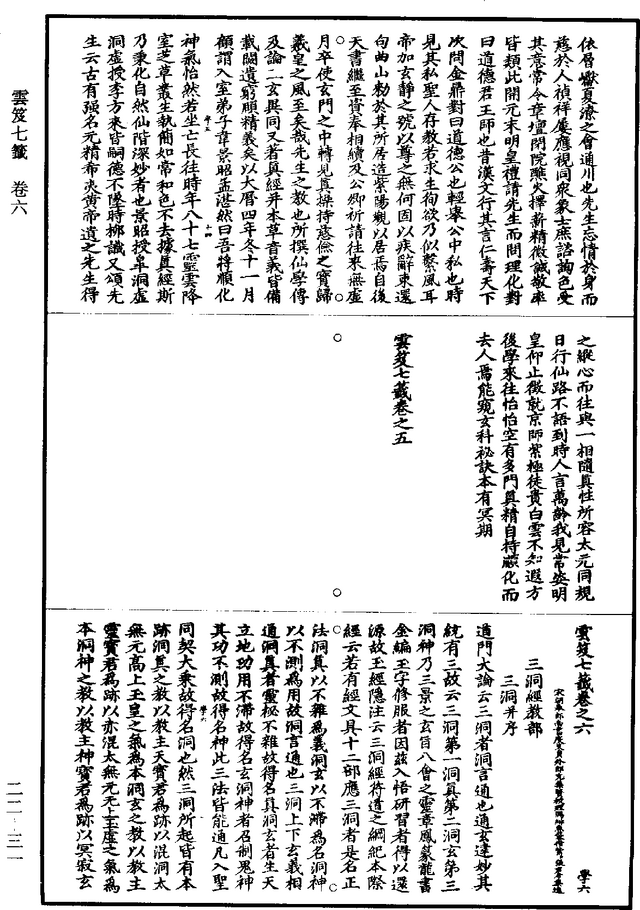 雲笈七籤 卷六
依曆嶽夏潦之會通川也先生忘情於身而
慈於人禎祥屢應視同衆象士庶諮詢色受
其意常令章壇閉院醮火擇薪精微誠敬率
皆類此開元末明皇禮請先生而問理化對
曰道德君王師也昔漢文行其言仁壽天下
次問金鼎對曰道德公也輕舉公中私也時
見其私聖人存教若求生徇欲乃似繫風耳
帝加玄靜之號以尊之無何固以疾辭東還
句曲山勑於其所居造紫陽觀以居焉自後
天書繼至賚奉相續及公卿祈請往來無虛
月卒使玄門之中轉見真操持慈儉之寶歸
羲皇之風至矣哉先生之教也所撰仙學傳
及論二玄異同又著真經并本草音義皆備
載闕遺窮頤精義矣以大曆四年冬十一月
顧謂入室弟子韋景昭孟湛然曰吾將順化
神氣怡然若坐亡長往時年八十七靈雲降
室芝草叢生執簡如常和色不去據真經斯
乃秉化自然仙階深妙者也景昭授皐洞虛
洞虛授李方來皆嗣德不墜時柳識又頌先
生云古有強名元精希夷黃帝遺之先生得
之縱心而往與一相隨真性所容太元同規
日行仙路不語到時人言萬齡我見常姿明
皇仰止徵就京師紫極徒貴白雲不知遐方
後學來往怡怡空有多門真精自持蹶化而
去人焉能窺玄科祕訣本有冥期
雲笈七籤卷之五
雲笈七籤卷之六
學六
三洞經教部
三洞并序
道門大論云三洞者洞言通也通玄達妙其
統有三故云三洞第一洞真第二洞玄第三
洞神乃三景之玄旨八會之靈章鳳篆龍書
金編玉字修服者因茲入悟研習者得以還
源故玉經隱注云三洞經符道之綱紀本際
經云若有經文具十二部應三洞者是名正
法洞真以不雜爲義洞玄以不滯爲名洞神
以不測爲用故洞言通也三洞上下玄義相
通洞真者靈祕不雜故得名真洞玄者生天
立地功用不滯故得名玄洞神者召制鬼神
其功不測故得名神此三法皆能通凡入聖
同契大乘故得名洞也然三洞所起皆有本
跡洞真之教以教主天寶君爲跡以混洞太
無元高上玉皇之氣爲本洞玄之教以教主
靈寶君爲跡以赤混太無元無上玉虛之氣爲
本洞神之教以教主神寶君爲跡以冥寂玄
二二-三一